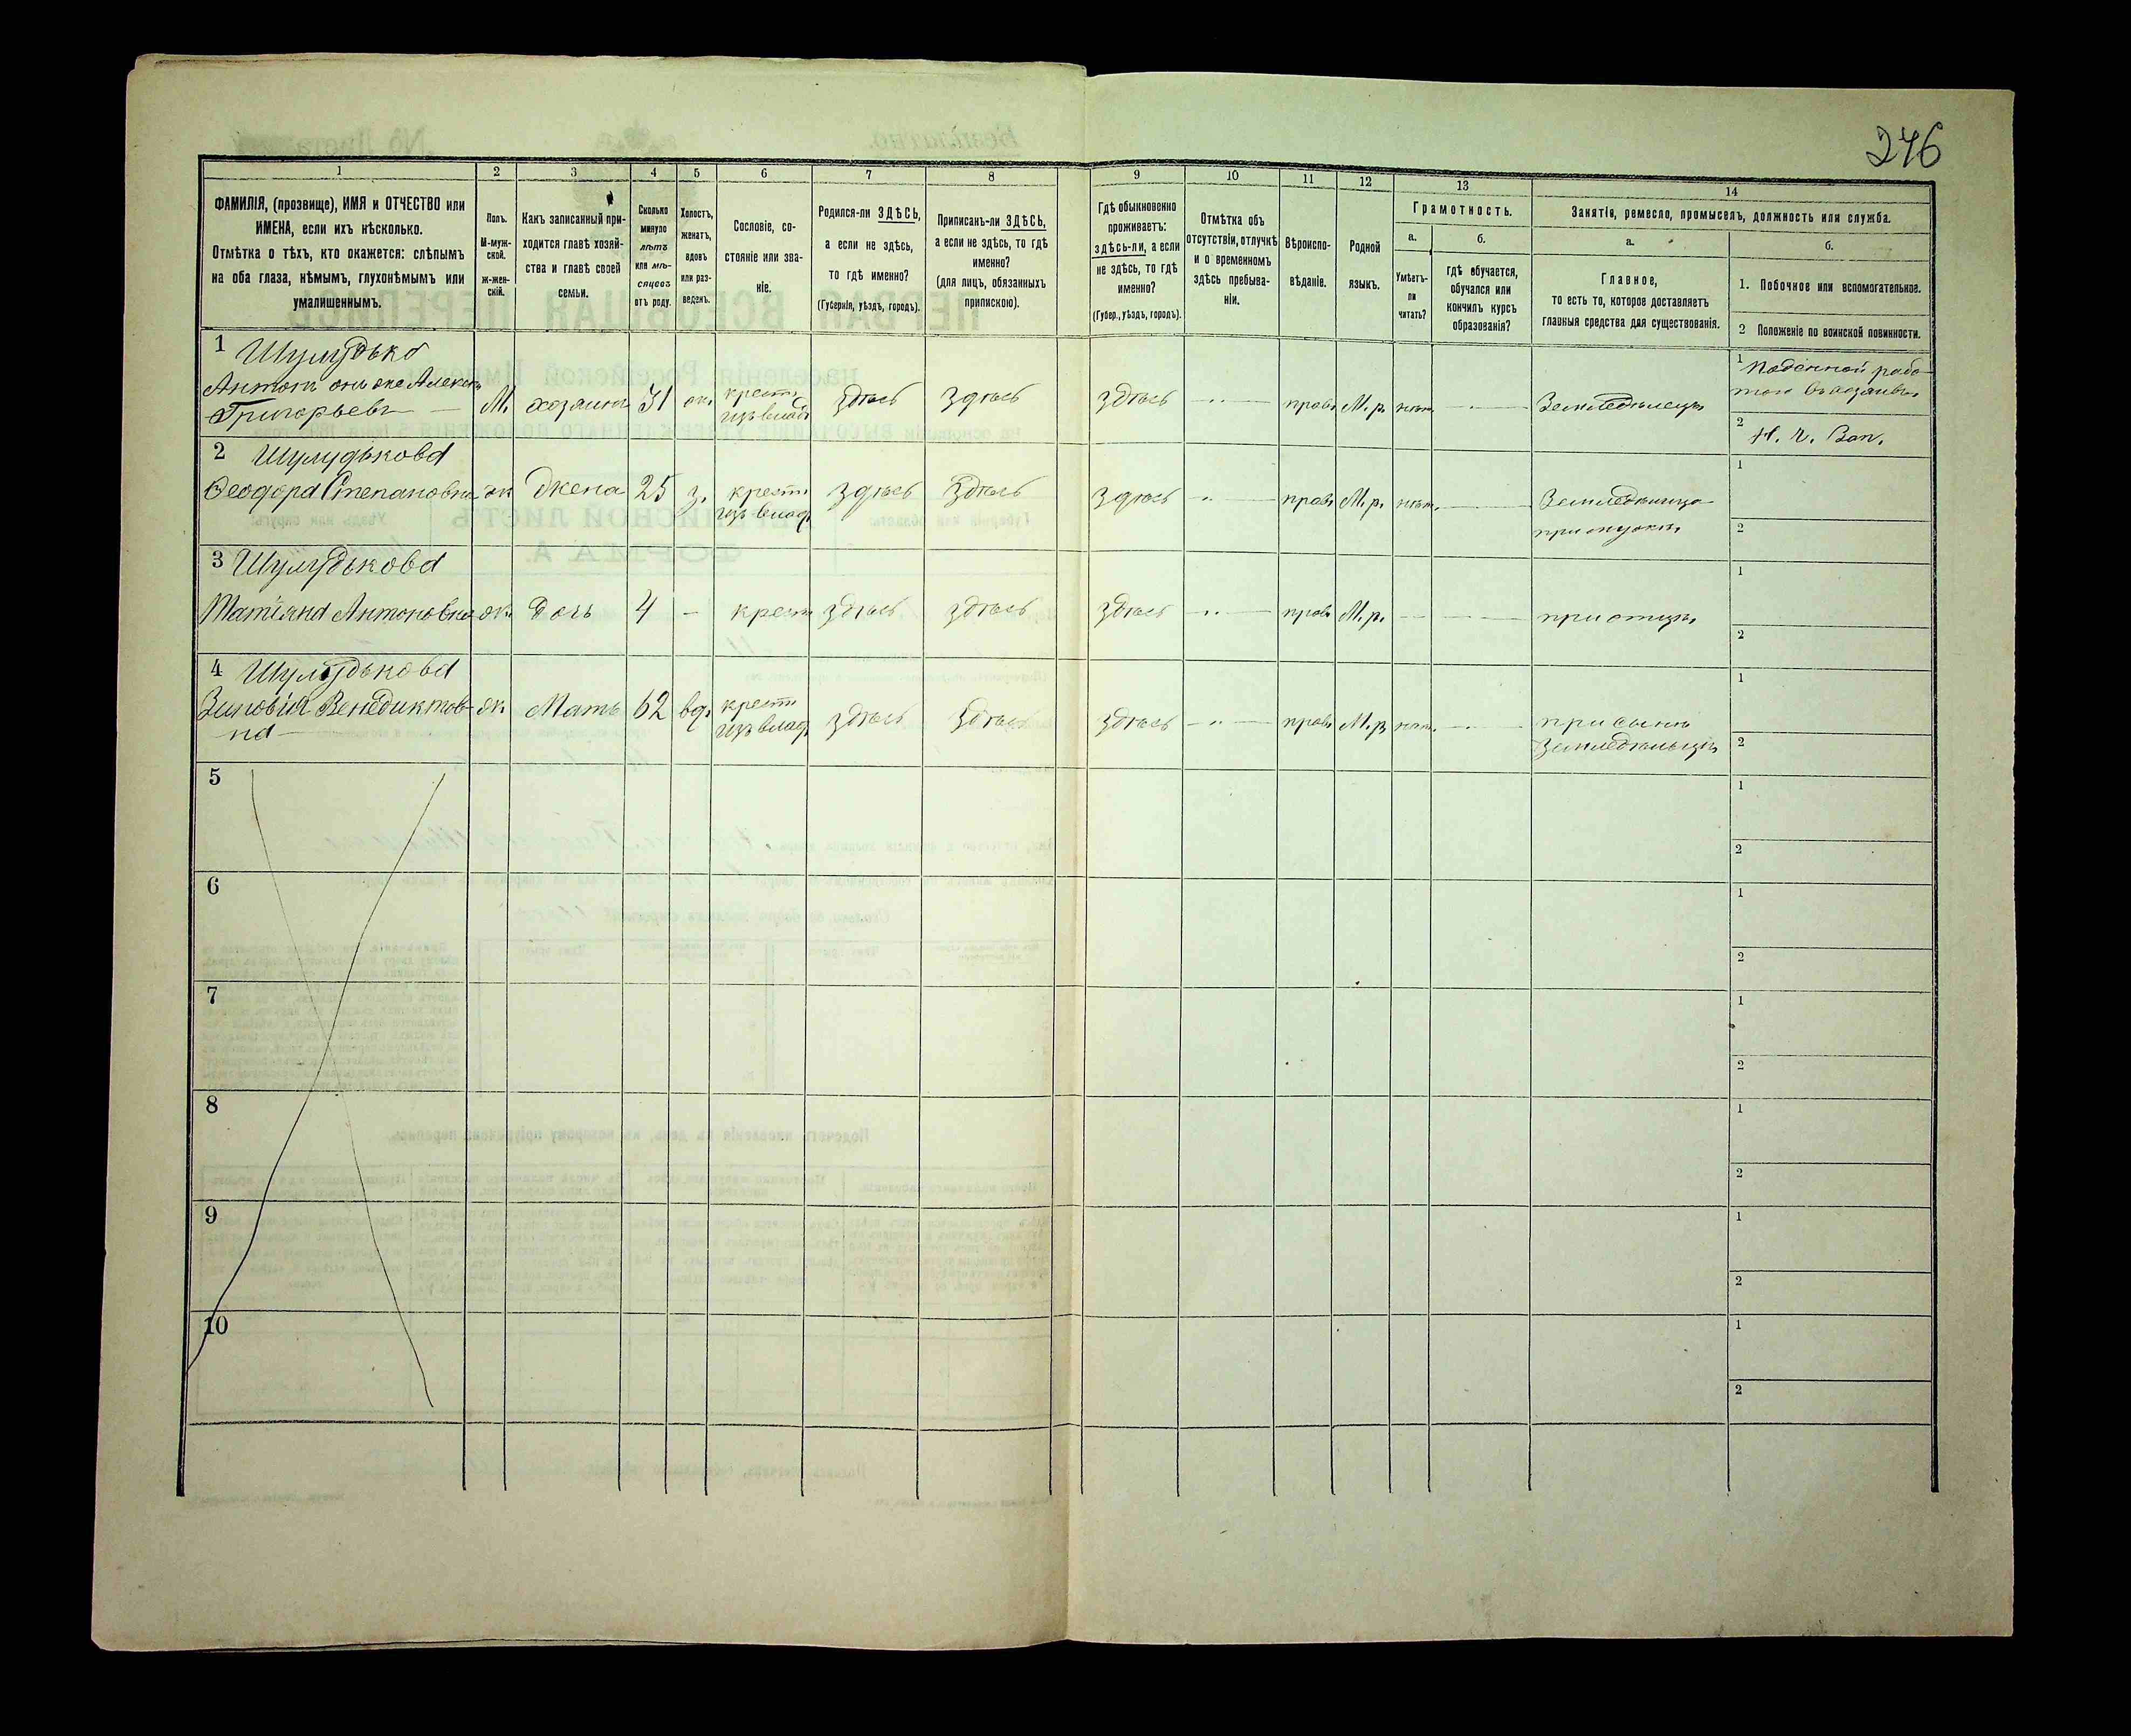 246
1 2 3 4 5 6 7 8 9 10 11 12 13 14
ФАМИЛІЯ, (прозвище), ИМЯ и ОТЧЕСТВО или
ИМЕНА, если ихъ нѣсколько.
Отмѣтка о тѣхъ, кто окажется: слѣпымъ
на оба глаза, нѣмымъ, глухонѣмымъ или
умалишеннымъ.
Полъ.
М-муж-
ской.
ж-жен-
скій.
Какъ записанный при-
ходится главѣ хозяй-
ства и главѣ своей
семьи.
Сколько
минуло
лѣтъ
или мѣ-
сяцевъ
отъ роду.
Холостъ,
женатъ,
вдовъ
или раз-
веденъ.
Сословіе, со-
стояніе или зва-
ніе.
Родился-ли ЗДѢСЬ,
а если не здѣсь,
то гдѣ именно?
(Губернія, уѣздъ, городъ).
Приписанъ-ли ЗДѢСЬ,
а если не здѣсь, то гдѣ
именно?
(для лицъ, обязанныхъ
припискою).
Гдѣ обыкновенно
проживаетъ:
здѣсь-ли, а если
не здѣсь, то гдѣ
именно?
(Губер., уѣздъ, городъ).
Отмѣтка объ
отсутствіи, отлучкѣ
и о временномъ
здѣсь пребыва-
ніи.
Вѣроиспо-
вѣданіе.
Родной
языкъ.
Грамотность.
а.
Умѣетъ-
ли
читать?
б.
Гдѣ обучается,
обучался или
кончилъ курсъ
образованія?
Занятіе, ремесло, промыселъ, должность или служба.
а.
Главное,
то есть то, которое доставляетъ
главныя средства для существованія.
б.
1. Побочное или вспомогательное.
2 Положеніе по воинской повинности.
1 Шулудько
Антонъ онъ же Алексѣ
Григорьевъ — М. хозяинъ 31 ж. крест. здѣсь здѣсь здѣсь — " — прав. М. р. нѣтъ — " — Земледѣлецъ
изъ влад.
1 Поденной рабо-
тою
2 Н. ч. Зап.
2 Шулудькова
Ѳеодора Степановна ж жена 25 з. крест. здѣсь здѣсь здѣсь " — прав. М. р. нѣт. — Земледѣлица
изъ влад. при мужѣ.
1
2
3 Шулудькова
Татіяна Антоновна ж. дочь 4 – крест здѣсь здѣсь здѣсь — " — прав М. р. — — при отцѣ.
1
2
4 Шулудькова
Зиновія Венедиктов- ж. Мать 62 вд. крест здѣсь здѣсь здѣсь — " — прав. М. р. нѣт. — " — при сынѣ
на — изъ влад. Земледѣльцѣ
1
2
5
1
2
6
1
2
7
1
2
8
1
2
9
1
2
10
1
2